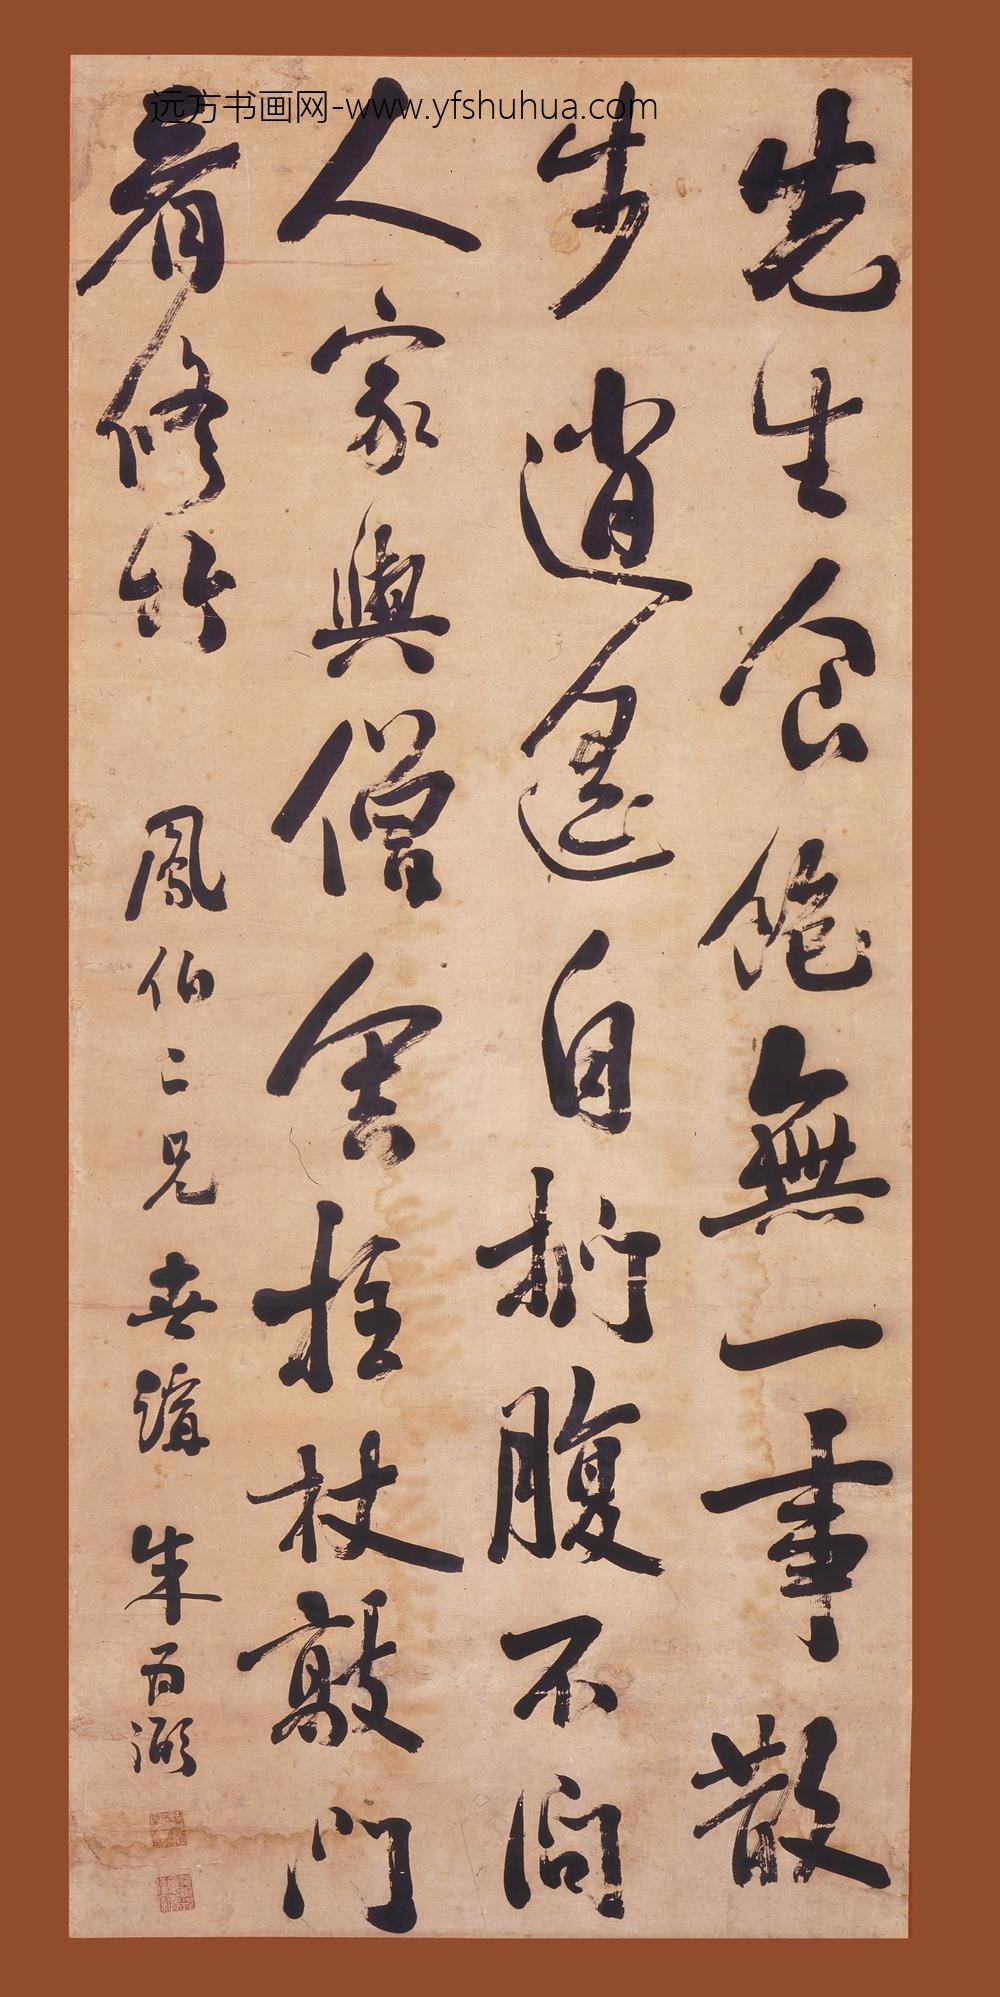 远方书画网-www.yfshuhua.com
先生食飽無一事散
步逍遥自捫腹不問
人家與僧舍拄杖敲門
看修竹
鳳伯二兄 喜講 朱为弼